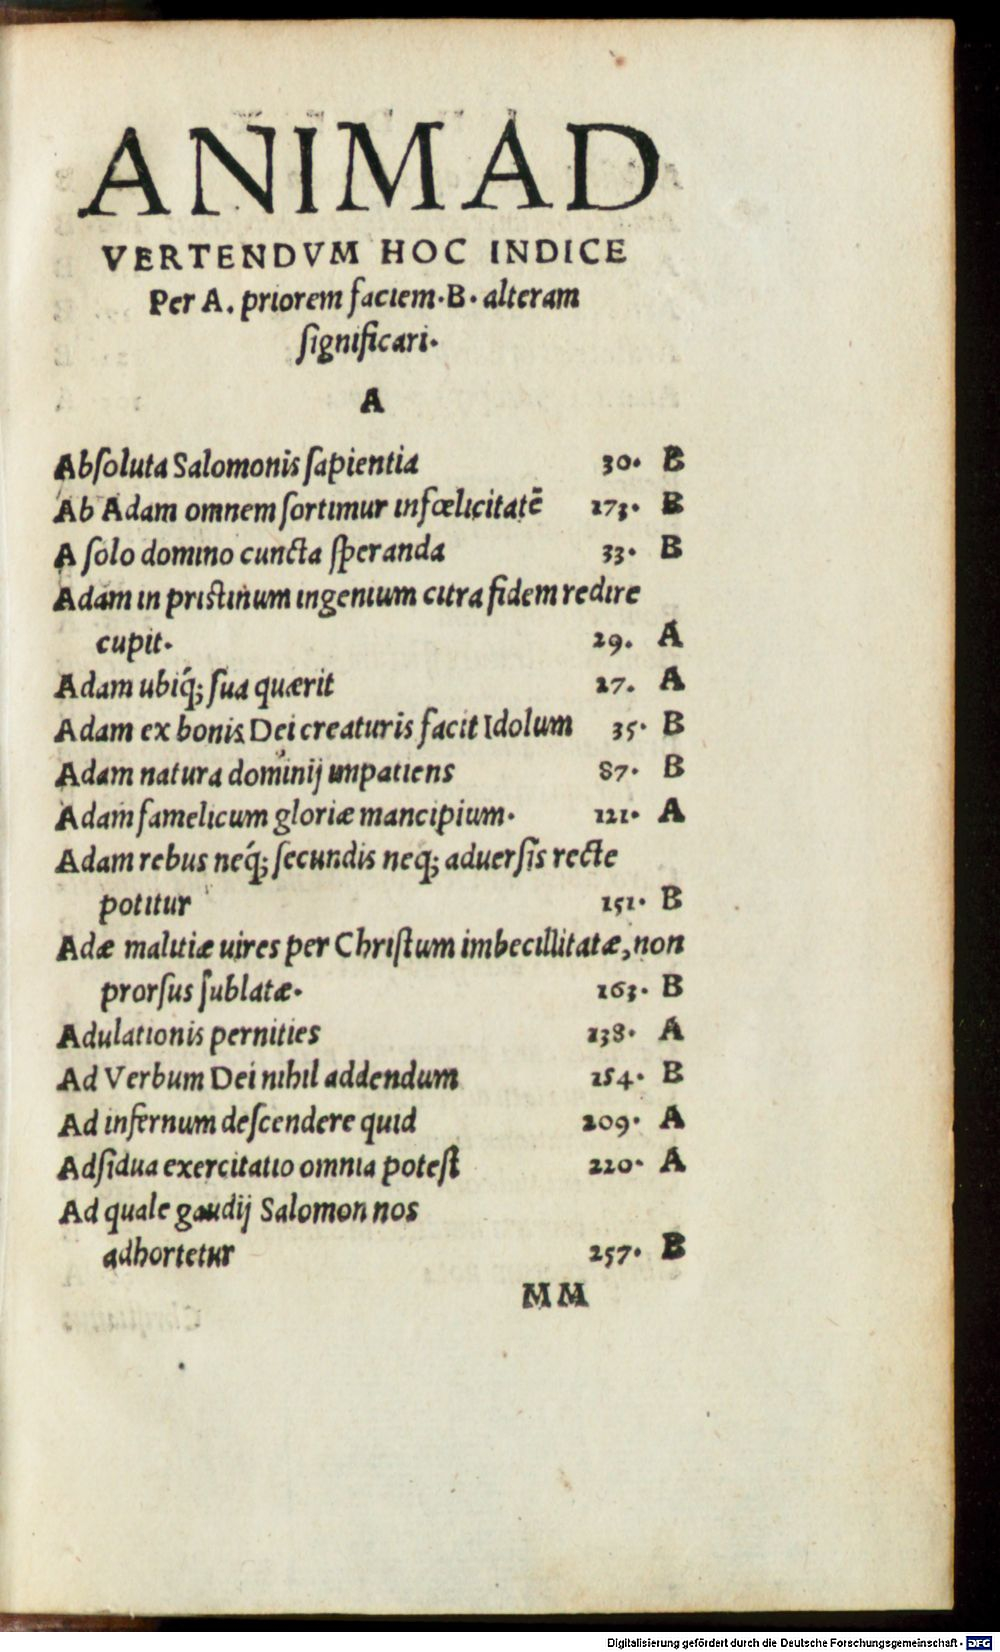 ANIMAD
VERTENDVM HOC INDICE
Per A. priorem faciem. B. alteram
ſignificari.
A
Abſoluta Salomonis ſapientia 30. B
Ab Adam omnem ſortimur infœlicitatẽ 173. B
A ſolo domino cuncta ſperanda 33. B
Adam in priſtinum ingenium citra fidem redire
cupit. 29. A
Adam ubiq́; ſua quærit 27. A
Adam ex bonis Dei creaturis facit Idolum 35. B
Adam natura dominij impatiens 87. B
Adam famelicum gloriæ mancipium. 121. A
Adam rebus neq́; ſecundis neq; aduerſis recte
potitur 151. B
Adæ malitiæ uires per Chriſtum imbecillitatæ, non
prorſus ſublatæ. 163. B
Adulationis pernities 138. A
Ad Verbum Dei nihil addendum 254. B
Ad infernum deſcendere quid 209. A
Adſidua exercitatio omnia poteſt 220. A
Ad quale gaudij Salomon nos
adhortetur 257. B
MM
Digitalisierung gefördert durch die Deutsche Forschungsgemeinschaft - DFG